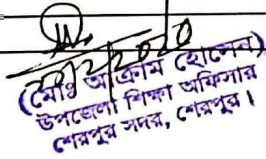 (মোঃ আক্রাম হোসেন)
উপজেলা শিক্ষা অফিসার
শেরপুর সদর, শেরপুর।